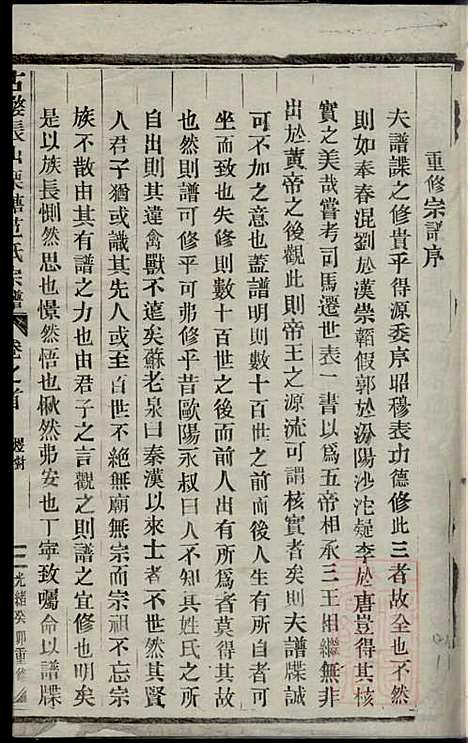 重修宗譜序
夫譜諜之修貴乎得源委序昭穆表功德修此三者故全也不然
則如奉春混劉於漢崇韜假郭於汾陽沙沱疑李於唐豈得其核
實之美哉嘗考司馬遷世表一書以爲五帝相承三王相繼無非
出於黄帝之後觀此則帝王之源流可謂核實者矣則夫譜牒誠
可不加之意也蓋譜明則數十百世之前而後人生有所得其可
坐而致也失修則數十百世之後而前人出有所爲者莫得其故
也然則譜可修乎可弗修乎昔歐陽永叔曰人不知其姓氏之所
自出則其違禽獸不遠矣蘇老泉曰秦漢以來士者不世然其賢
人君子猶或識其先人或至百世不絶無廟無宗而宗祖不忘宗
族不散由其有譜之力也由君子之言觀之則譜之宜修也明矣
是以族長惻然思也憬然悟也楸然弗安也丁寧致囑命以譜牒
古婺長山栗塘范氏宗譜 卷之首
光緒癸卯重修